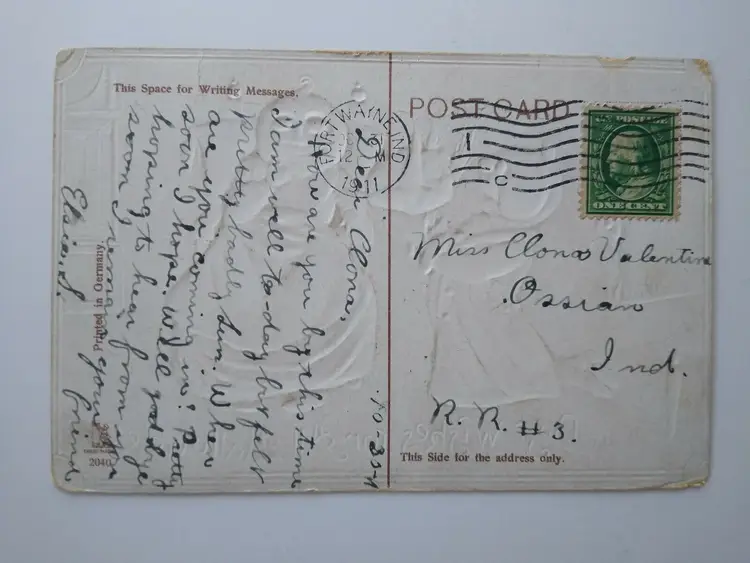 This Space for Writing Messages.
POST CARD
FORT WAYNE, IND
12 M
1911
1
C
U.S. POSTAGE
ONE CENT
Dear Clona.
How are you by this time
I am well to-day but felt
pretty badly Sun. When
are you coming in? Pretty
soon I hope. Well good bye
hoping to hear from you
soon I remain your friend
Elsie S.
Miss Clona Valentine
Ossian
Ind.
R. R. #3.
Printed in Germany.
2040
This Side for the address only.